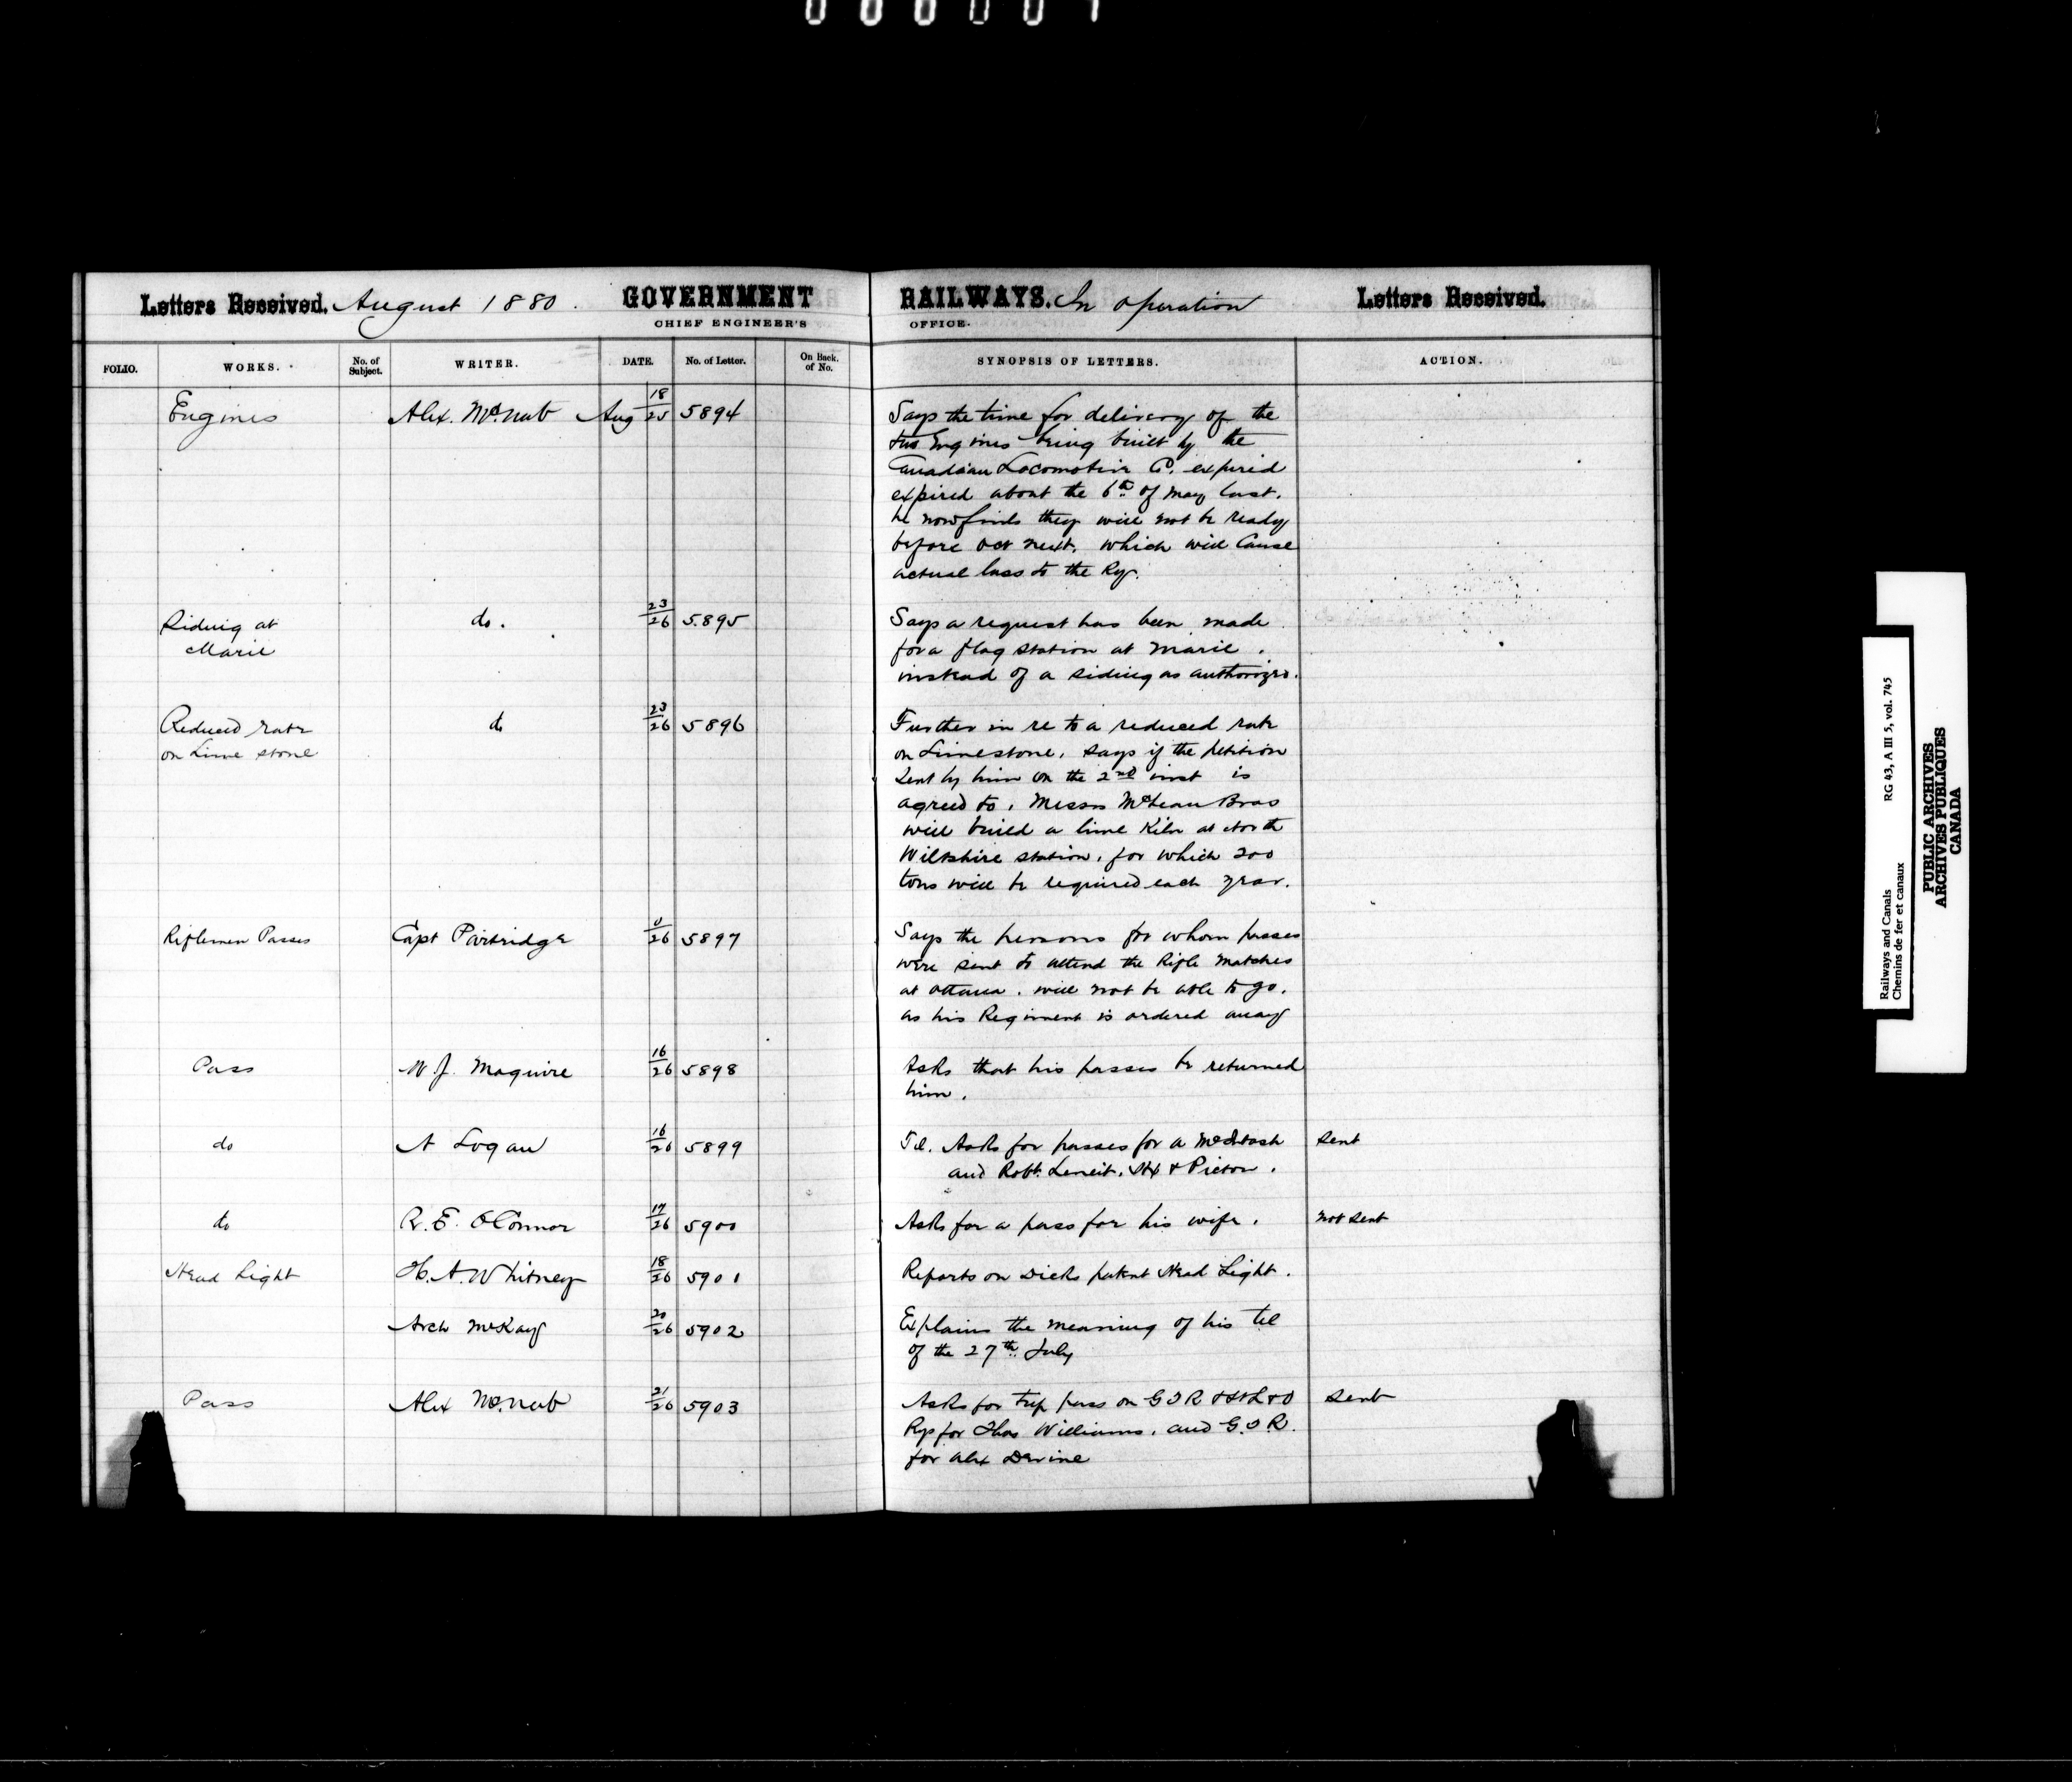 Letters Received. August 1880. GOVERNMENT RAILWAYS. In operation Letters Received.
CHIEF ENGINEER'S OFFICE.
FOLIO. WORKS. No. of Subject. WRITER. DATE. No. of Letter. On Back. of No. SYNOPSIS OF LETTERS. ACTION.
Engines Alex. McNab Aug 18/25 5894 Says the time for delivery of the
two Engines being built by the
Canadian Locomotive Co. expired
expired about the 6th of May last.
he now finds they will not be ready
before Oct next. which will Cause
actual loss to the Ry.
Siding at do. 23/26 5895 Says a request has been made
Marie for a flag station at Marie.
instead of a siding as authorized.
Reduced rate do 23/26 5896 Further in re to a reduced rate
on Lime stone on Limestone. says if the petition
sent by him on the 2nd inst is
agreed to. Messrs McLean Bros
will build a lime Kiln at North
Wiltshire station. for which 200
tons will be required each year.
Riflemen Passes Capt Partridge /26 5897 Says the persons for whom passes
were sent to attend the Rifle Matches
at Ottawa. will not be able to go.
as his Regiment is ordered away
Pass W. J. Maguire 16/26 5898 Asks that his passes be returned
him.
do A Logan 16/26 5899 Tel. Asks for passes for A McIntosh sent
and Robt. Hx & Pictou.
do R. E. OConnor 17/26 5900 Asks for a pass for his wife. not sent
Head Light H. A. Whitney 18/26 5901 Reports on Dicks patent Head Light.
Arch McKay 20/26 5902 Explains the meaning of his tel
of the 27th July
Pass Alex McNab 21/26 5903 Asks for trip pass on G T R & St L & O sent
Ry for Thos Williams. and G.T.R.
for Alex Devine
Railways and Canals RG 43, A III 5, vol. 745
Chemins de fer et canaux
PUBLIC ARCHIVES
ARCHIVES PUBLIQUES
CANADA